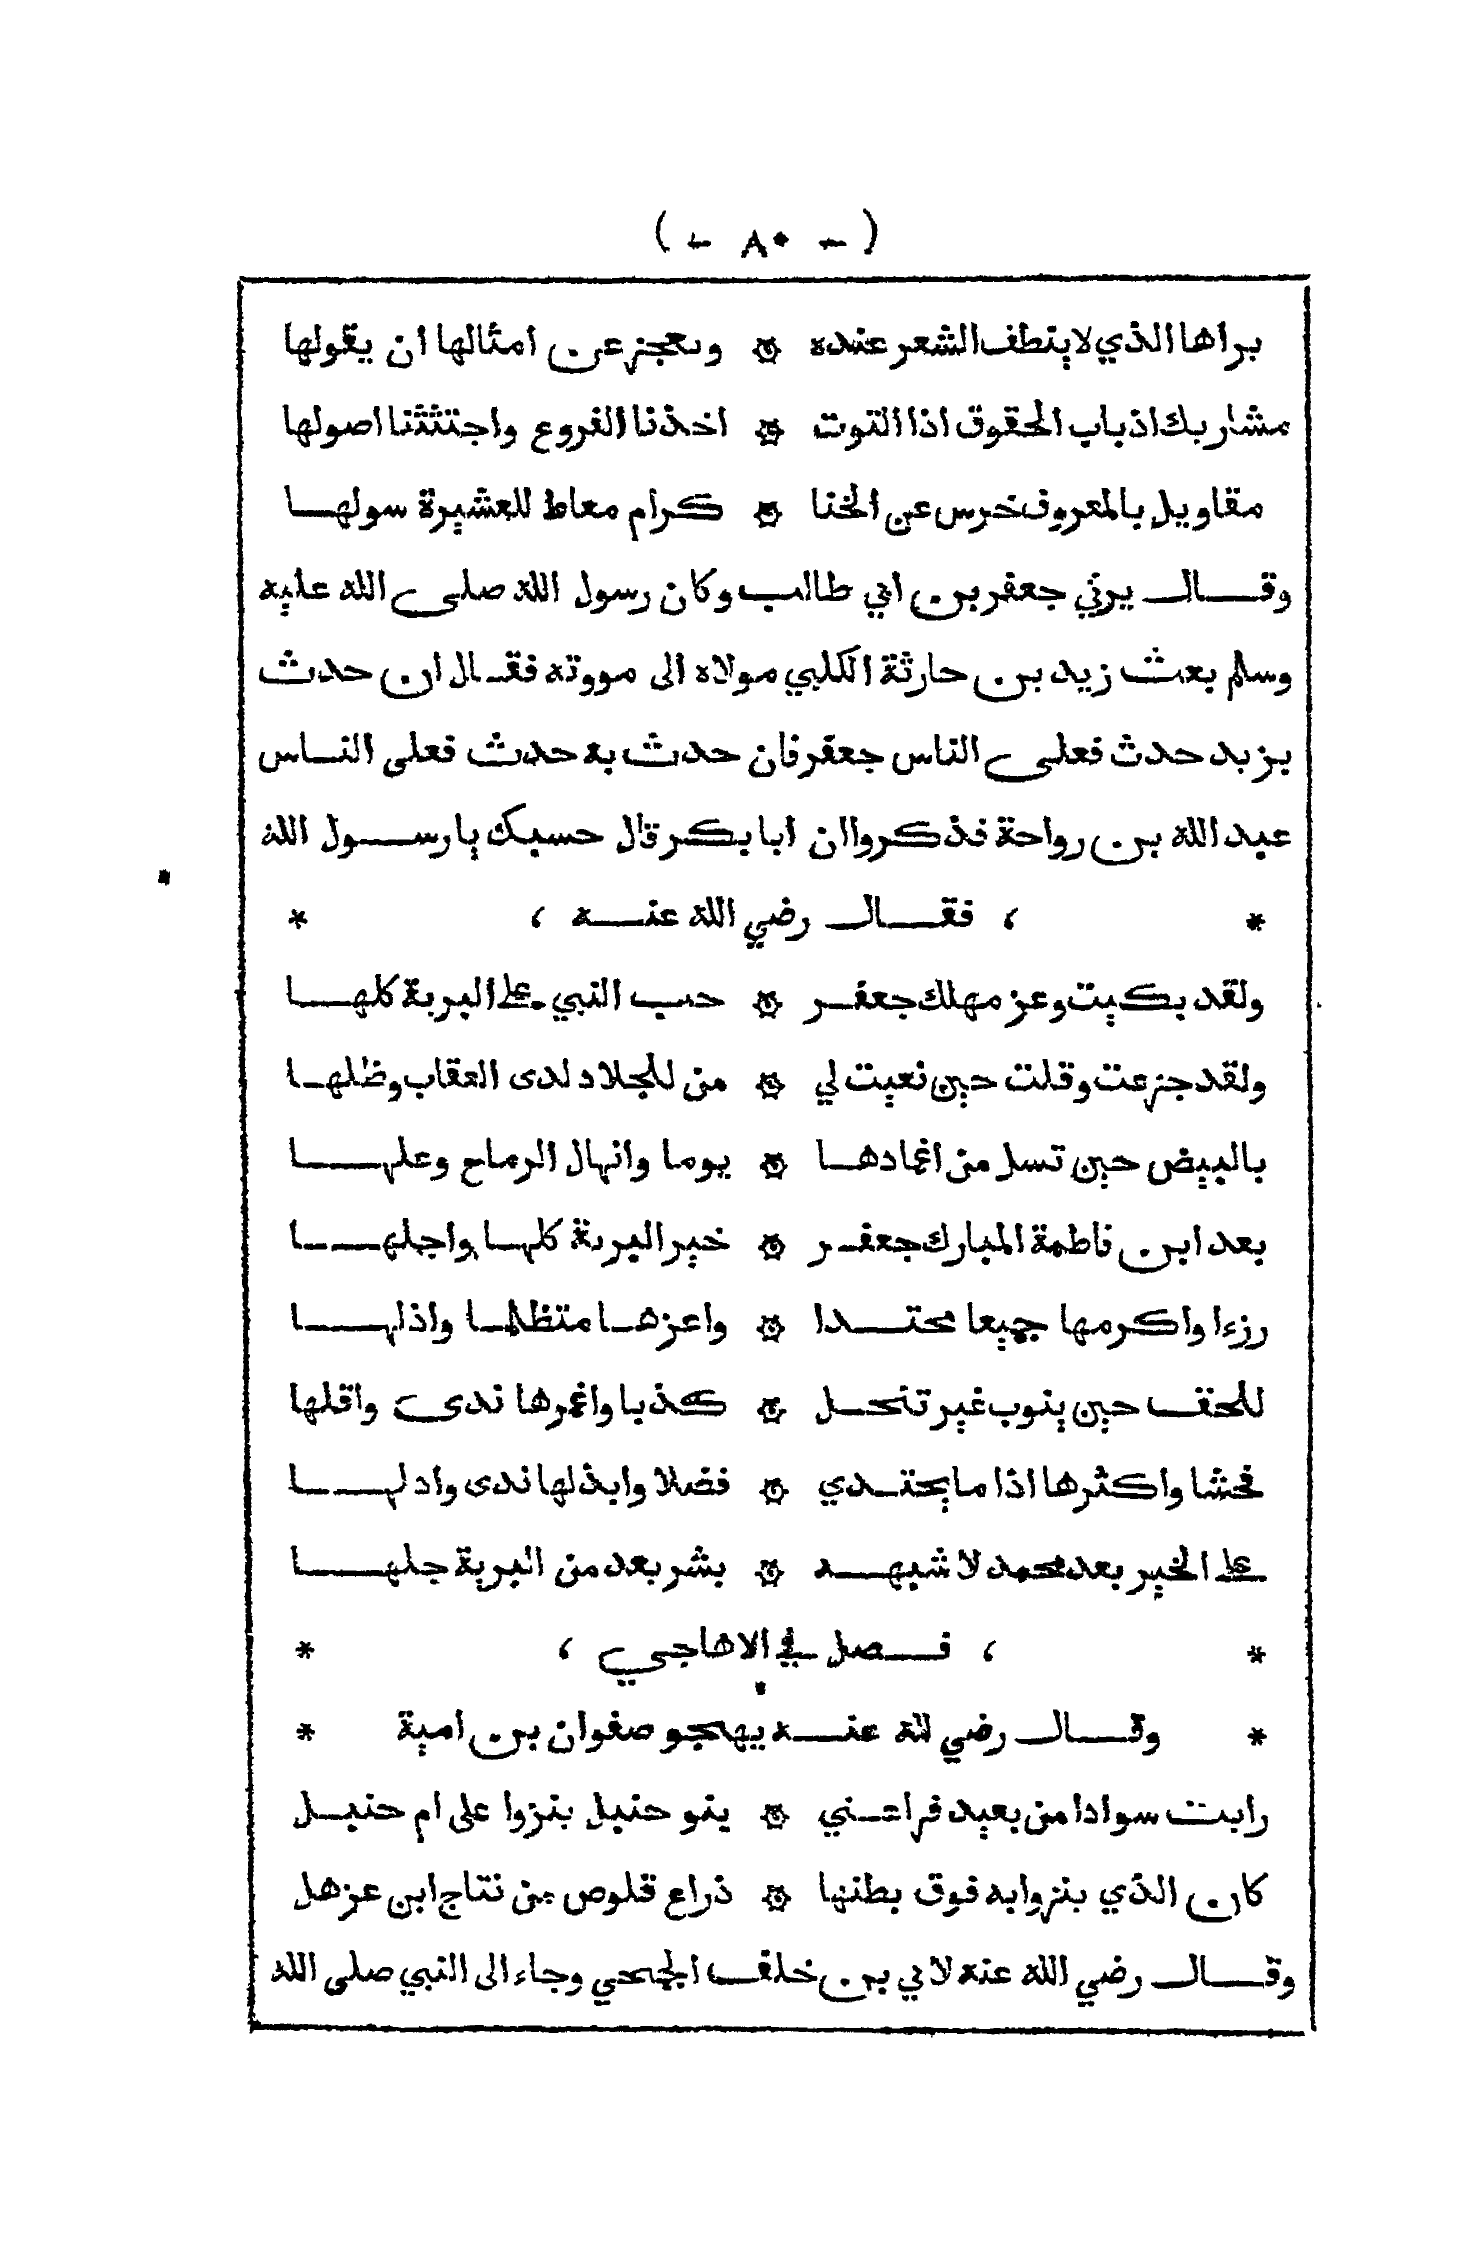 ( - ٨٠ - )
براها الذي لا ينطف الشعر عنده ۞ ويعجز عن امثالها ان يقولها
مشاربك اذباب الحقوق اذا التوت ۞ اخذنا الفروع واجتثثنا اصولها
مقاويل بالمعروف خرس عن الخنا ۞ كرام معاط للعشيرة سولها
وقال يرثي جعفر بن ابي طالب وكان رسول الله صلى الله عليه
وسلم بعث زيد بن حارثة الكلبي مولاه الى مووته فقال ان حدث
بزيد حدث فعلى الناس جعفر فان حدث به حدث فعلى الناس
عبد الله بن رواحة فذكروا ان ابا بكر قال حسبك يا رسول الله
* ، فقال رضي الله عنه ، *
ولقد بكيت وعز مهلك جعفر ۞ حب النبي على البرية كلها
ولقد جزعت وقلت حين نعيت لي ۞ من للجلاد لدى العقاب وظلها
بالبيض حين تسل من اغمادها ۞ يوما وانهال الرماح وعلها
بعد ابن فاطمة المبارك جعفر ۞ خير البرية كلها واجلها
رزءا واكرمها جميعا محتدا ۞ واعزها متظلما واذلها
للحتف حين ينوب غير تنحل ۞ كذبا واغمرها ندى واقلها
فحشا واكثرها اذا ما يجتدي ۞ فضلا وابذلها ندى وادلها
على الخير بعد محمد لا شبهه ۞ بشر بعد من البرية جلها
* ، فصل في الاهاجي ، *
* وقال رضي لله عنه يهجو صفوان بن امية *
رايت سوادا من بعيد فراعني ۞ ينو حنبل ينزوا على ام حنبل
كان الذي ينزوا به فوق بطنها ۞ ذراع قلوص من نتاج ابن عزهل
وقال رضي الله عنه لابي بن خلف الجمحي وجاء الى النبي صلى الله